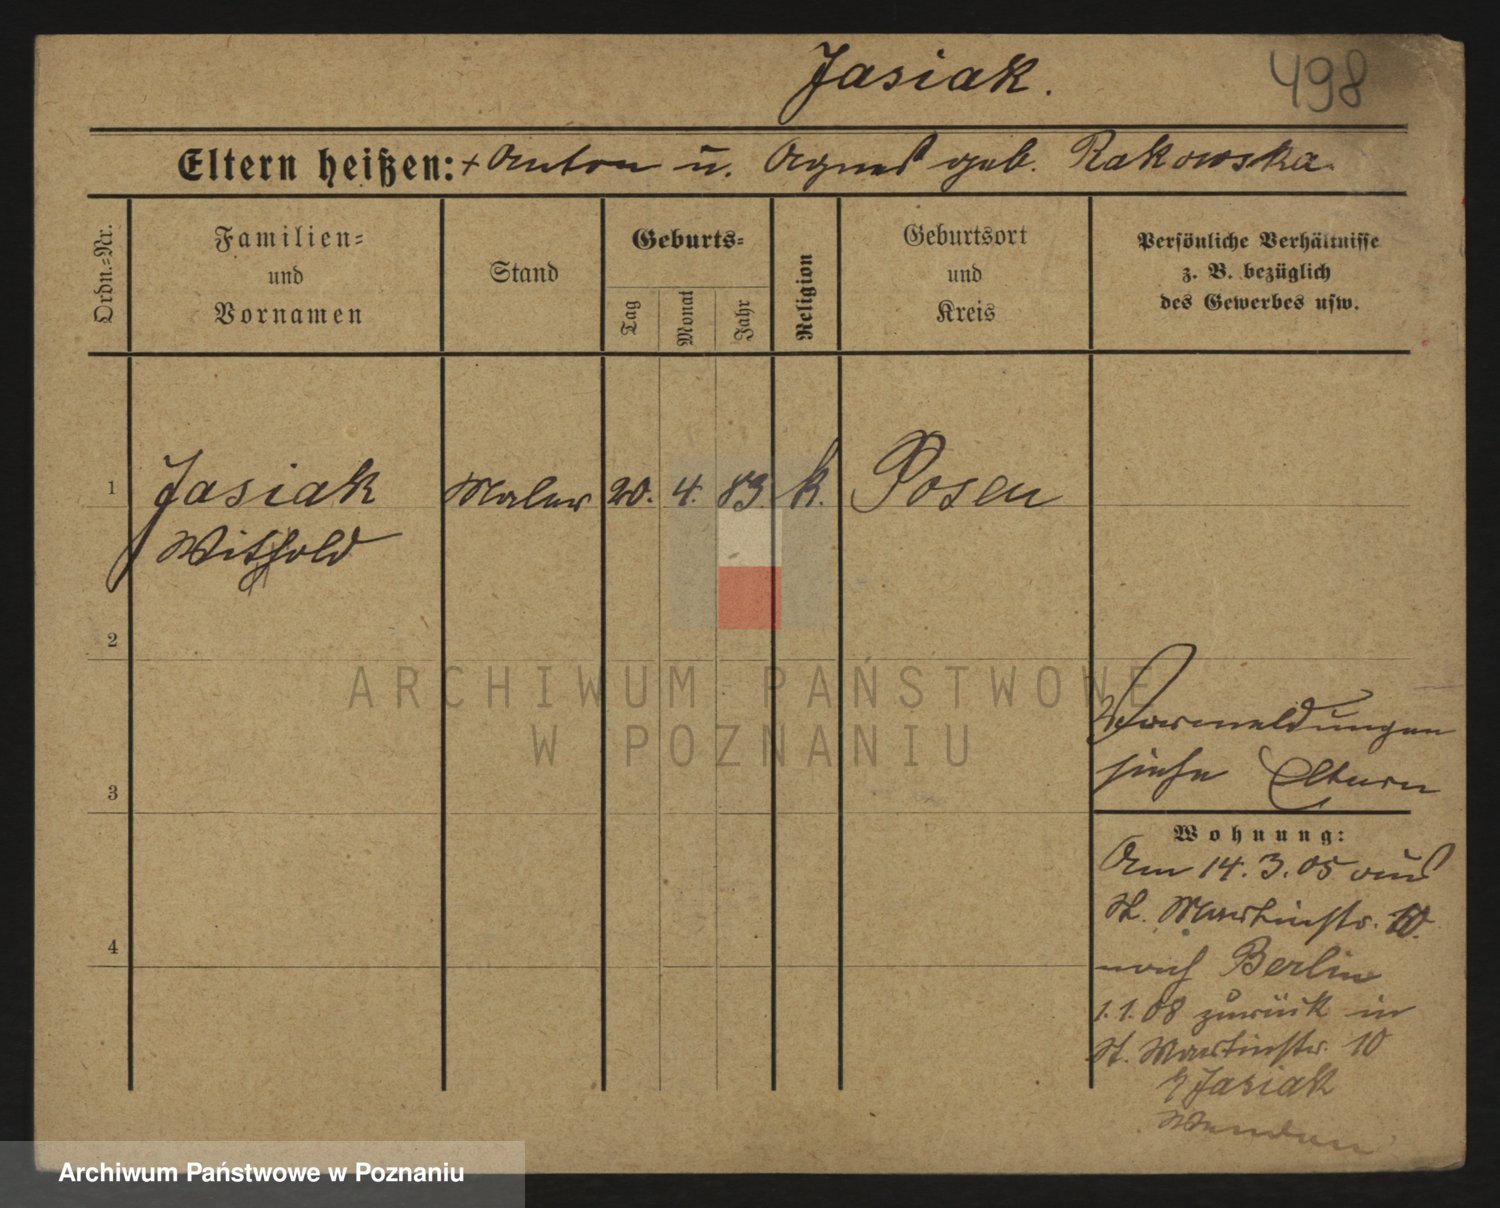 Jasiak.
498
Eltern heißen: + Anton u. Agnes geb. Rakowska.
Ordn.=Nr.
Familien=
und
Vornamen
Stand
Geburts=
Tag
Monat
Jahr
Religion
Geburtsort
und
Kreis
Persönliche Verhältnisse
z. B. bezüglich
des Gewerbes usw.
1
Jasiak Maler 20. 4. 83. k. Posen
Withold
2
ARCHIWUM PAŃSTWOWE
W POZNANIU
Vormeldungen
siehe Eltern
3
Wohnung:
Am 14.3.05 aus
St. Martinstr. 10.
nach Berlin
4
1.1.08 zurück in
St. Martinstr. 10
Jasiak
Wenden
Archiwum Państwowe w Poznaniu